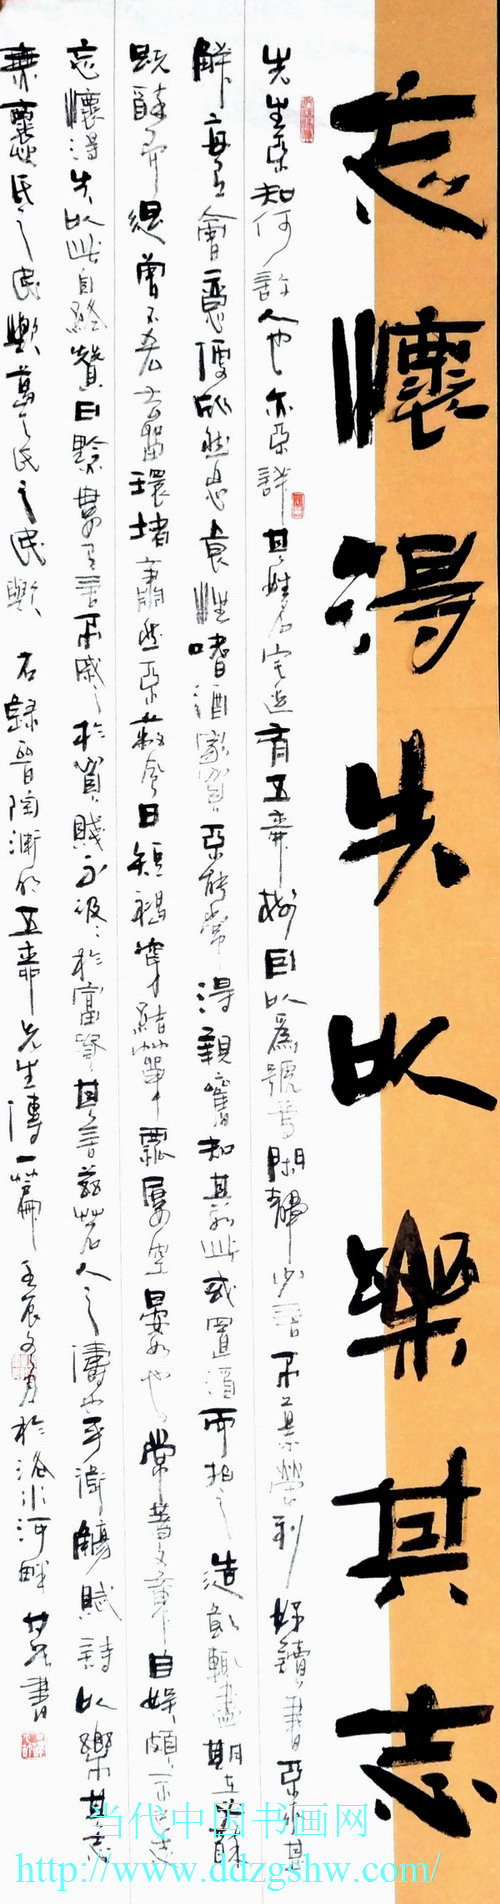 忘懷得失以樂其志
先生不知何許人也亦不詳其姓名宅邊有五柳樹因以爲號焉閑靜少言不慕榮利好讀書不求甚
解每有會意便欣然忘食性嗜酒家貧不能常得親舊知其如此或置酒而招之造飲輒盡期在必醉
既醉而退曾不吝去留環堵蕭然不蔽風日短褐穿結簞瓢屢空晏如也常著文章自娛頗示己志
忘懷得失以此自終贊曰黔婁有言不戚戚於貧賤不汲汲於富貴其言茲若人之儔乎銜觴賦詩以樂其志
無懷氏之民歟葛天氏之民歟 右錄晉陶淵明五柳先生傳一篇 壬辰 於洛水河畔 書
当代中国书画网
http://www.ddzgshw.com/